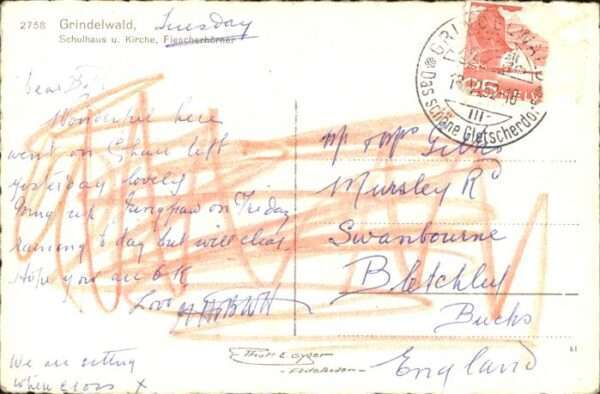 2758 Grindelwald, Tuesday
Schulhaus u. Kirche, Fiescherhörner
Dear
Wonderful here
went on Chair left
yesterday lovely
Going up Jungfrau on Friday
raining to day but will clear
Hope you are O.K
Love
We are sitting
where cross X
GRINDELWALD
Das schöne Gletscherdorf
Gibbs
Mursley Rd
Swanbourne
Bletchley
Bucks
England